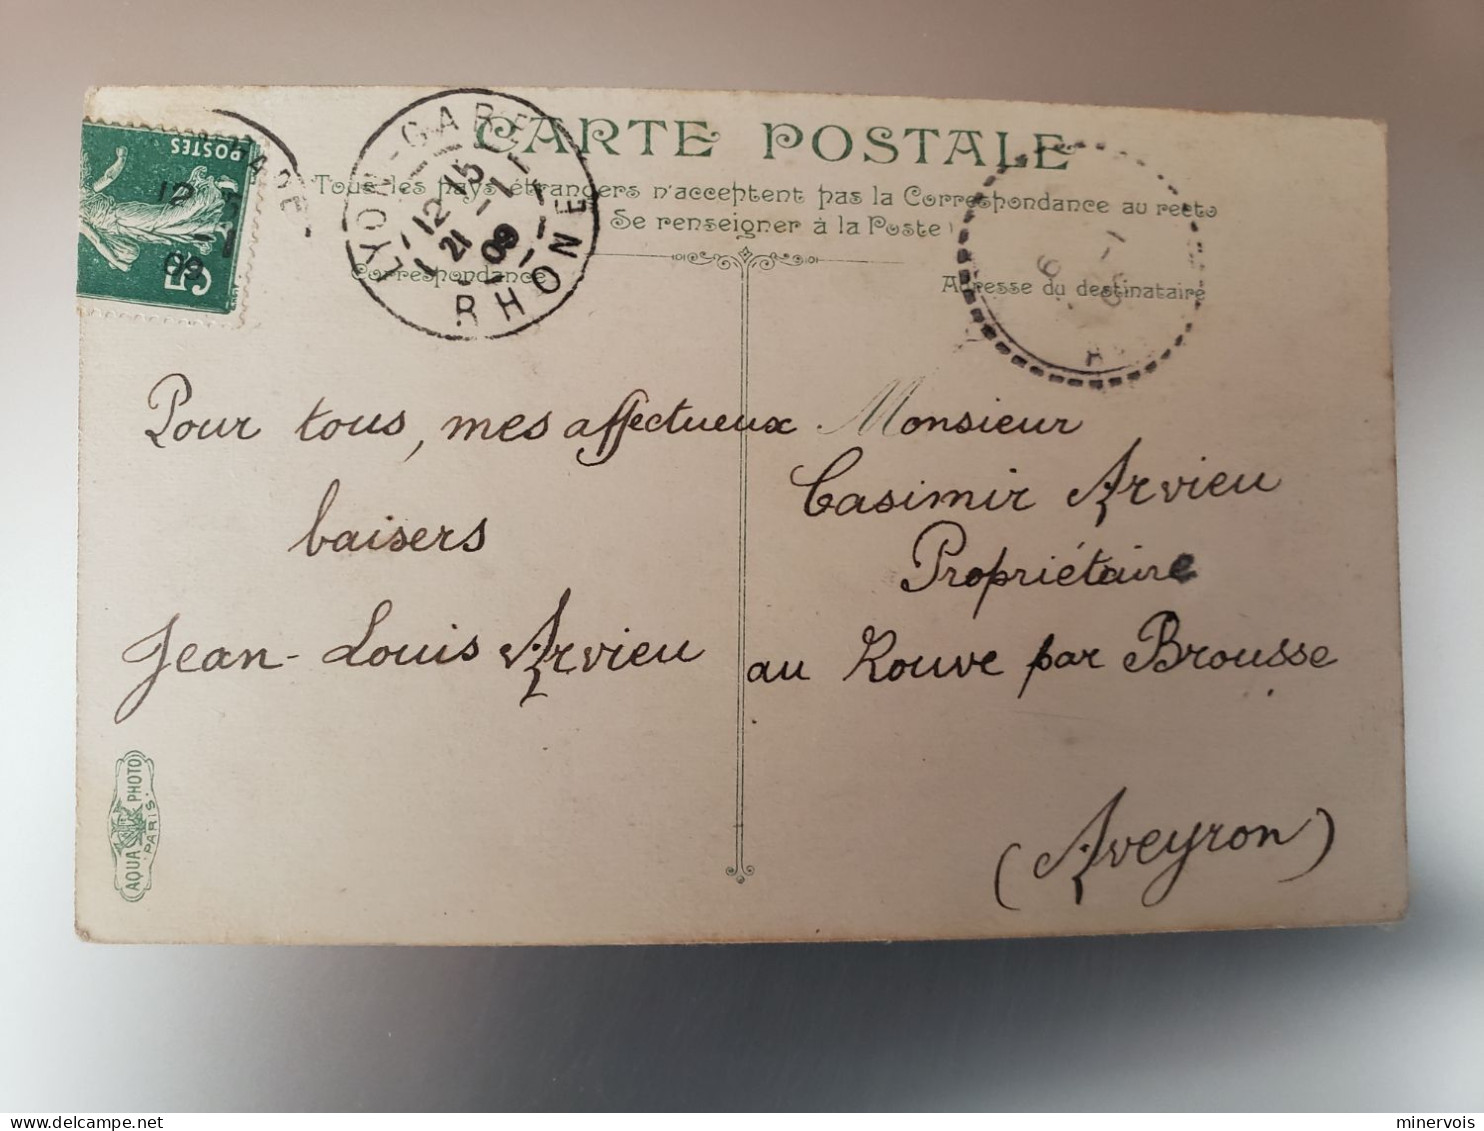 CARTE POSTALE
Tous les pays étrangers n'acceptent pas la Correspondance au recto
Se renseigner à la Poste
Correspondance
Adresse du destinataire
POSTES
5c
12
09
LYON-GARE
12 15
21 -1
09
RHONE
Pour tous, mes affectueux
baisers
Jean-Louis Arvieu
Monsieur
Casimir Arvieu
Propriétaire
au Rouve par Brousse
(Aveyron)
AQUA PHOTO
PARIS.
minervois